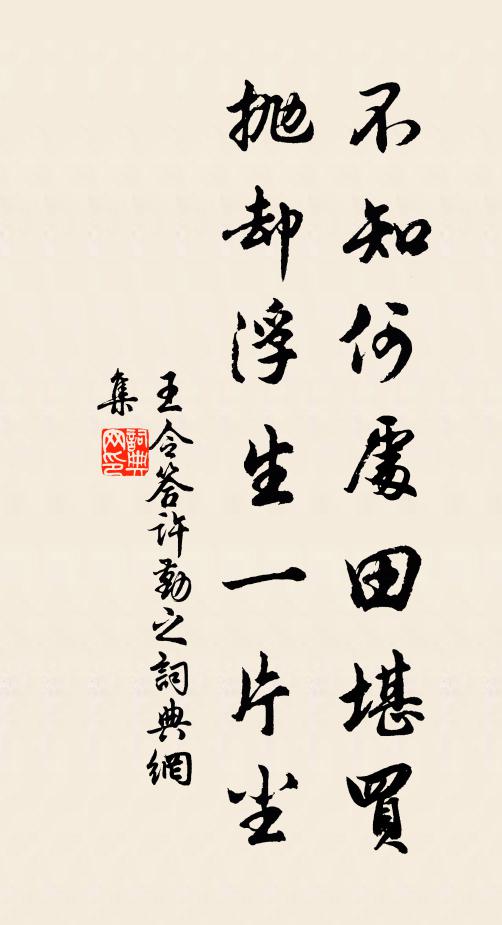 不知何處田堪買
拋却浮生一片尘
王令答許勤之詞典網
集
詞典网印